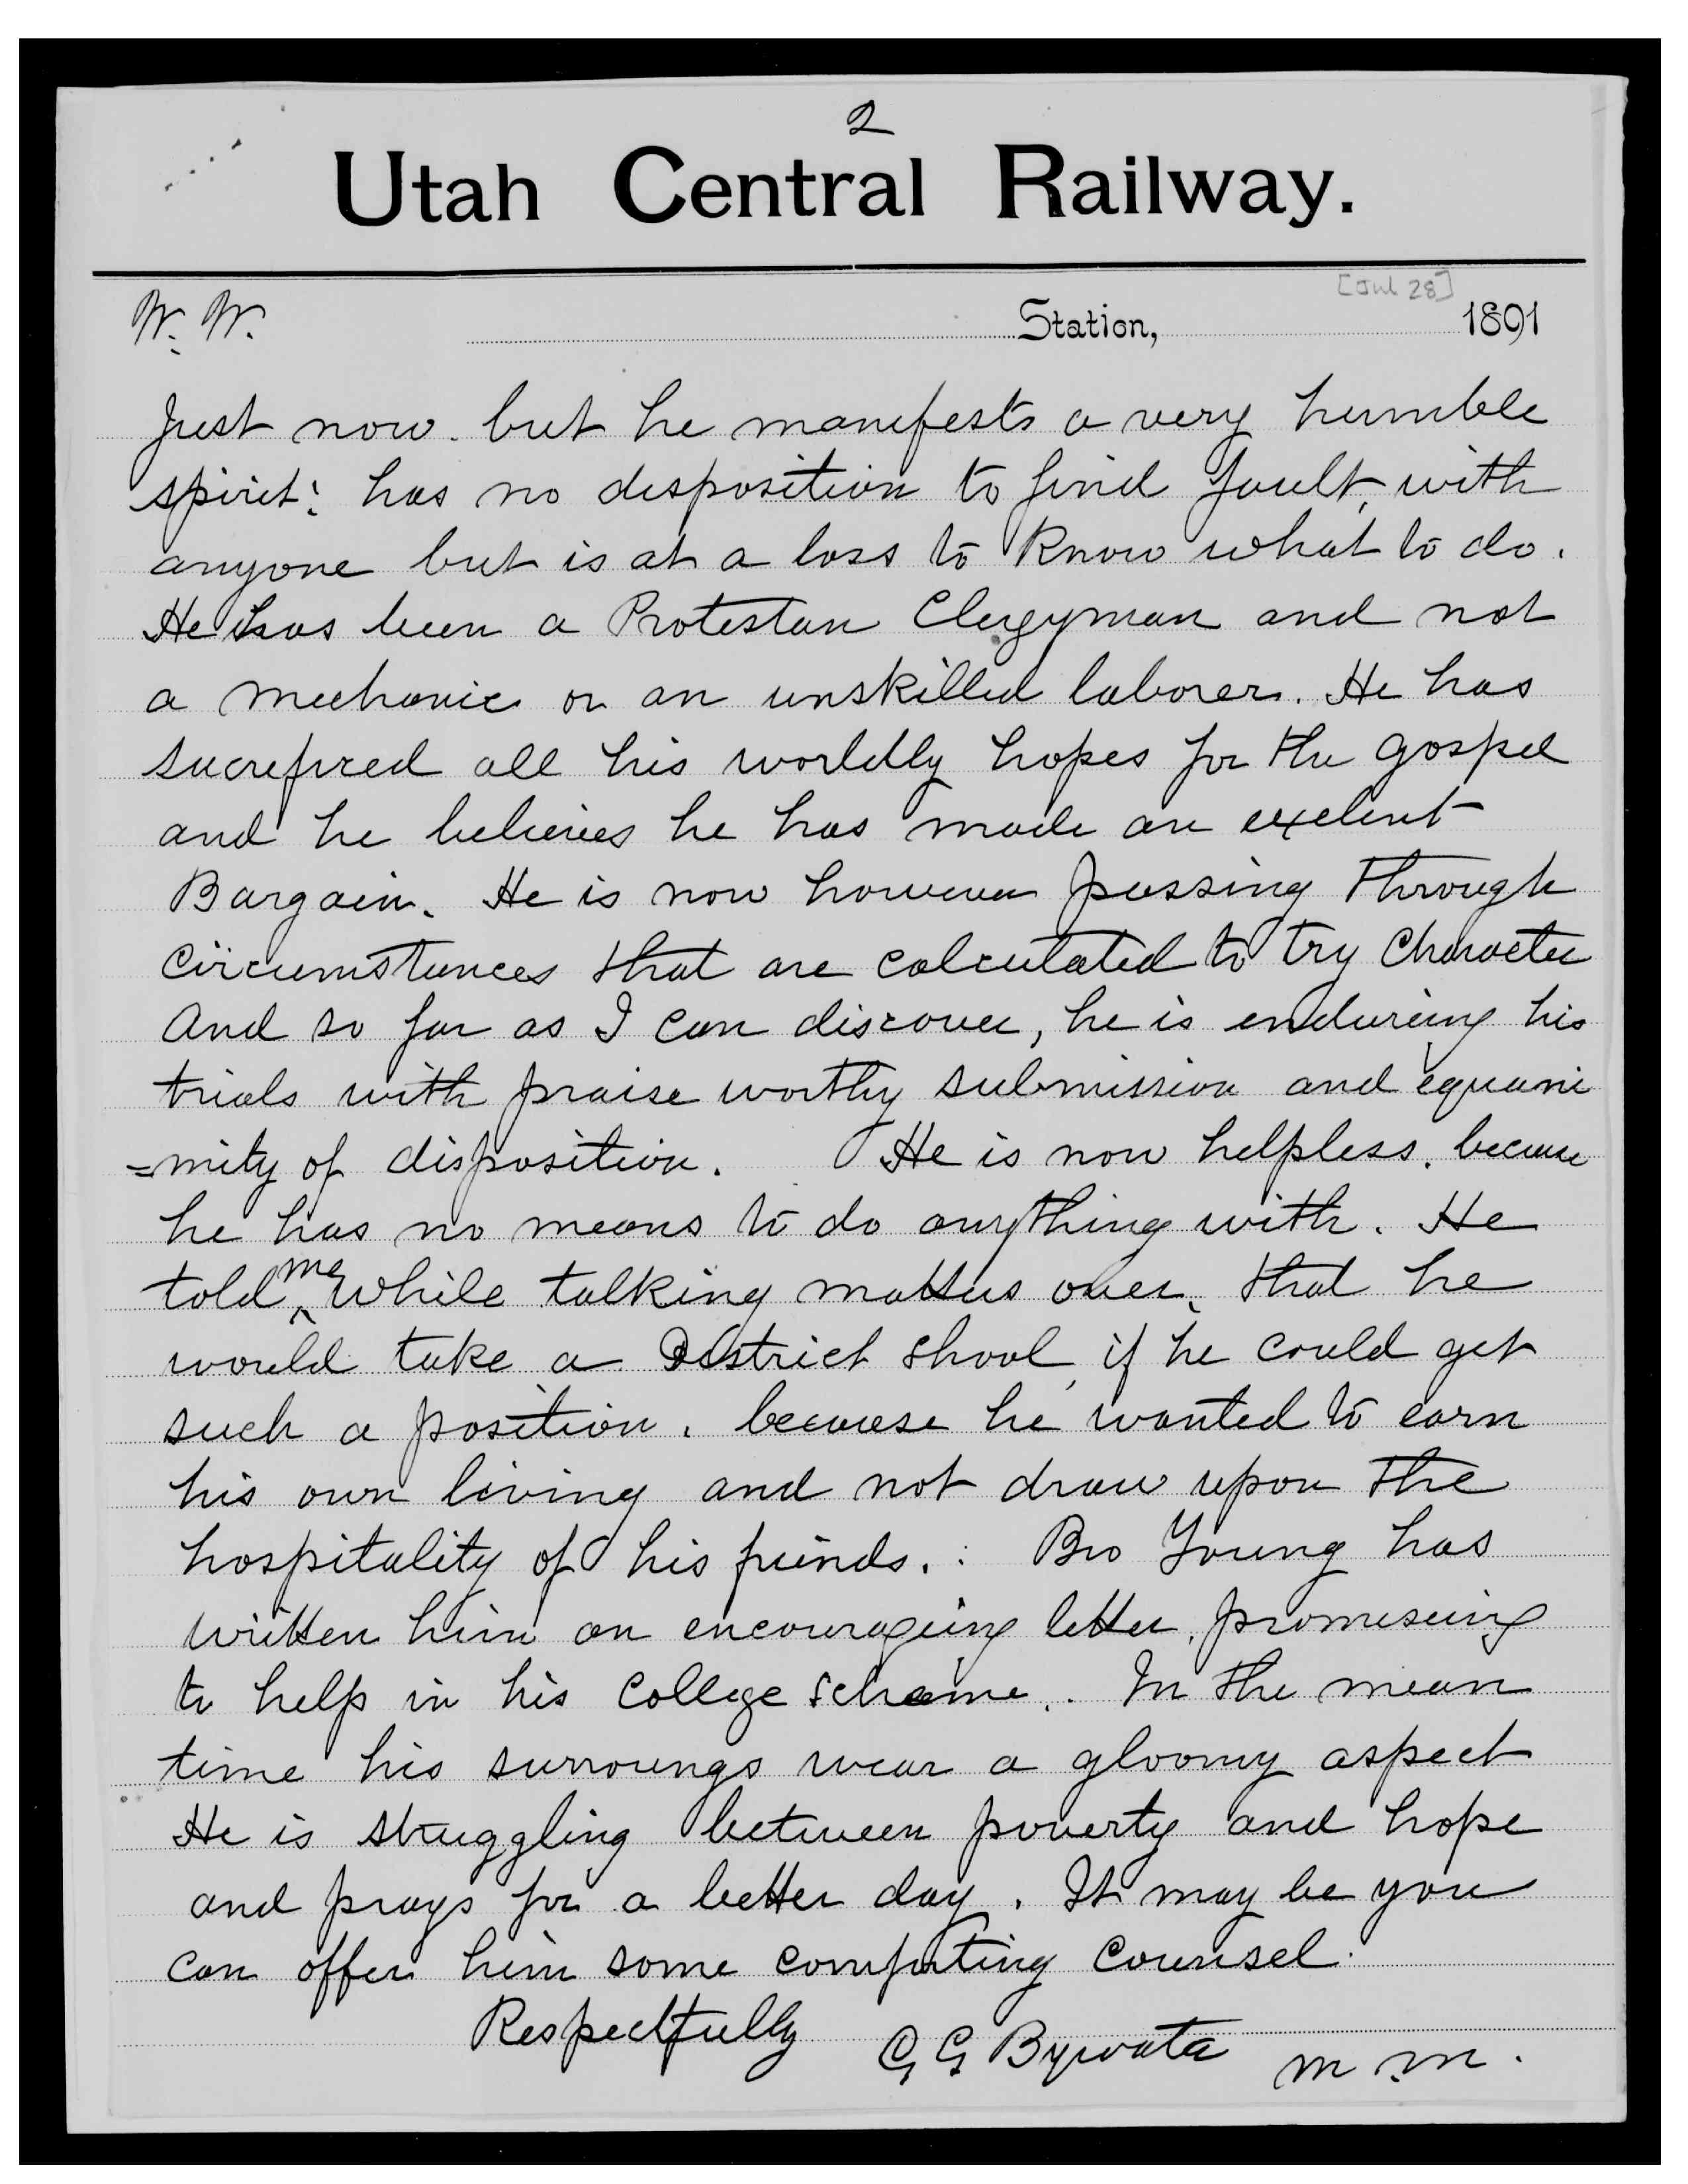 2
Utah Central Railway.
[Jul 28]
W. W. Station, 1891
Just now. but he manifests a very humble
spirit: has no disposition to find fault, with
anyone but is at a loss to Know what to do.
He has been a Protestan Clergyman and not
a mechanic or an unskilled laborer. He has
sacrificed all his worldly hopes for the gospel
and he believes he has made an exelent
Bargain. He is now however passing through
circumstances that are calculated to try Character
And so far as I can discover, he is enduring his
trials with praise worthy submission and equani
=mity of disposition. He is now helpless. because
he has no means to do anything with. He
told me while talking matters over, that he
would take a District shool, if he could get
such a position, because he wanted to earn
his own living and not draw upon the
hospitality of his friends. : Bro Young has
written him an encouraging letter, promiseing
to help in his College scheme.. In the mean
time his surroungs wear a gloomy aspect
He is struggling between poverty and hope
and prays for a better day. It may be you
can offer him some comforting Counsel.
Respectfully G G Bywater m.m.